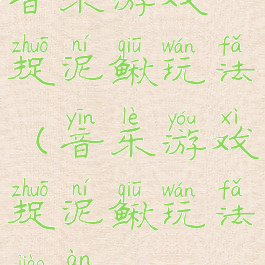 音乐游戏
zhuō ní qiū wán fǎ
捉泥鳅玩法
yīn lè yóu xì
（音乐游戏
zhuō ní qiū wán fǎ
捉泥鳅玩法
jiào àn